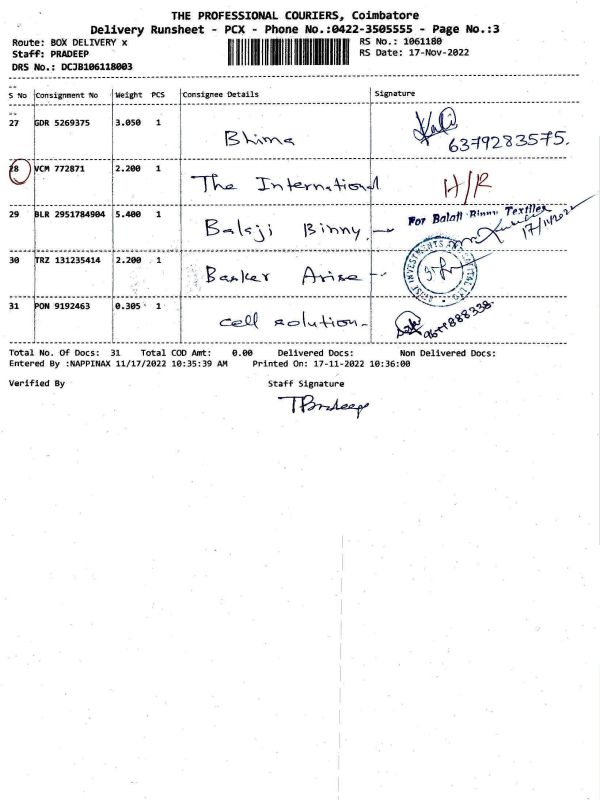 THE PROFESSIONAL COURIERS, Coimbatore
Delivery Runsheet - PCX - Phone No.:0422-3505555 - Page No.:3
Route: BOX DELIVERY x RS No.: 1061180
Staff: PRADEEP RS Date: 17-Nov-2022
DRS No.: DCJB106118003
S No Consignment No Weight PCS Consignee Details Signature
27 GDR 5269375 3.050 1 Bhima Kali
6379283575.
28 VCM 772871 2.200 1 The International H/R
29 BLR 2951784904 5.400 1 Balaji Binny. For Balaji Binny Textiles
17/11/2022
30 TRZ 131235414 2.200 1 Banker Arise
31 PON 9192463 0.305 1 cell solution.
Total No. Of Docs: 31 Total COD Amt: 0.00 Delivered Docs: Non Delivered Docs:
Entered By :NAPPINAX 11/17/2022 10:35:39 AM Printed On: 17-11-2022 10:36:00
Verified By Staff Signature
TPradeep